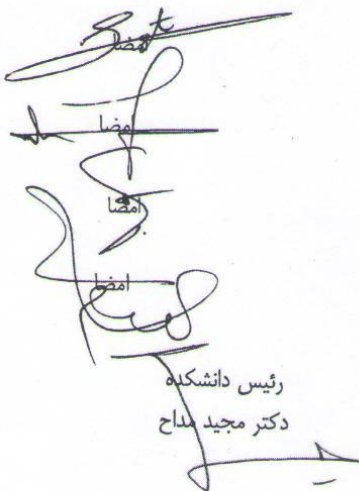 امضا
امضا
امضا
امضا
رئیس دانشکده
دکتر مجید مداح